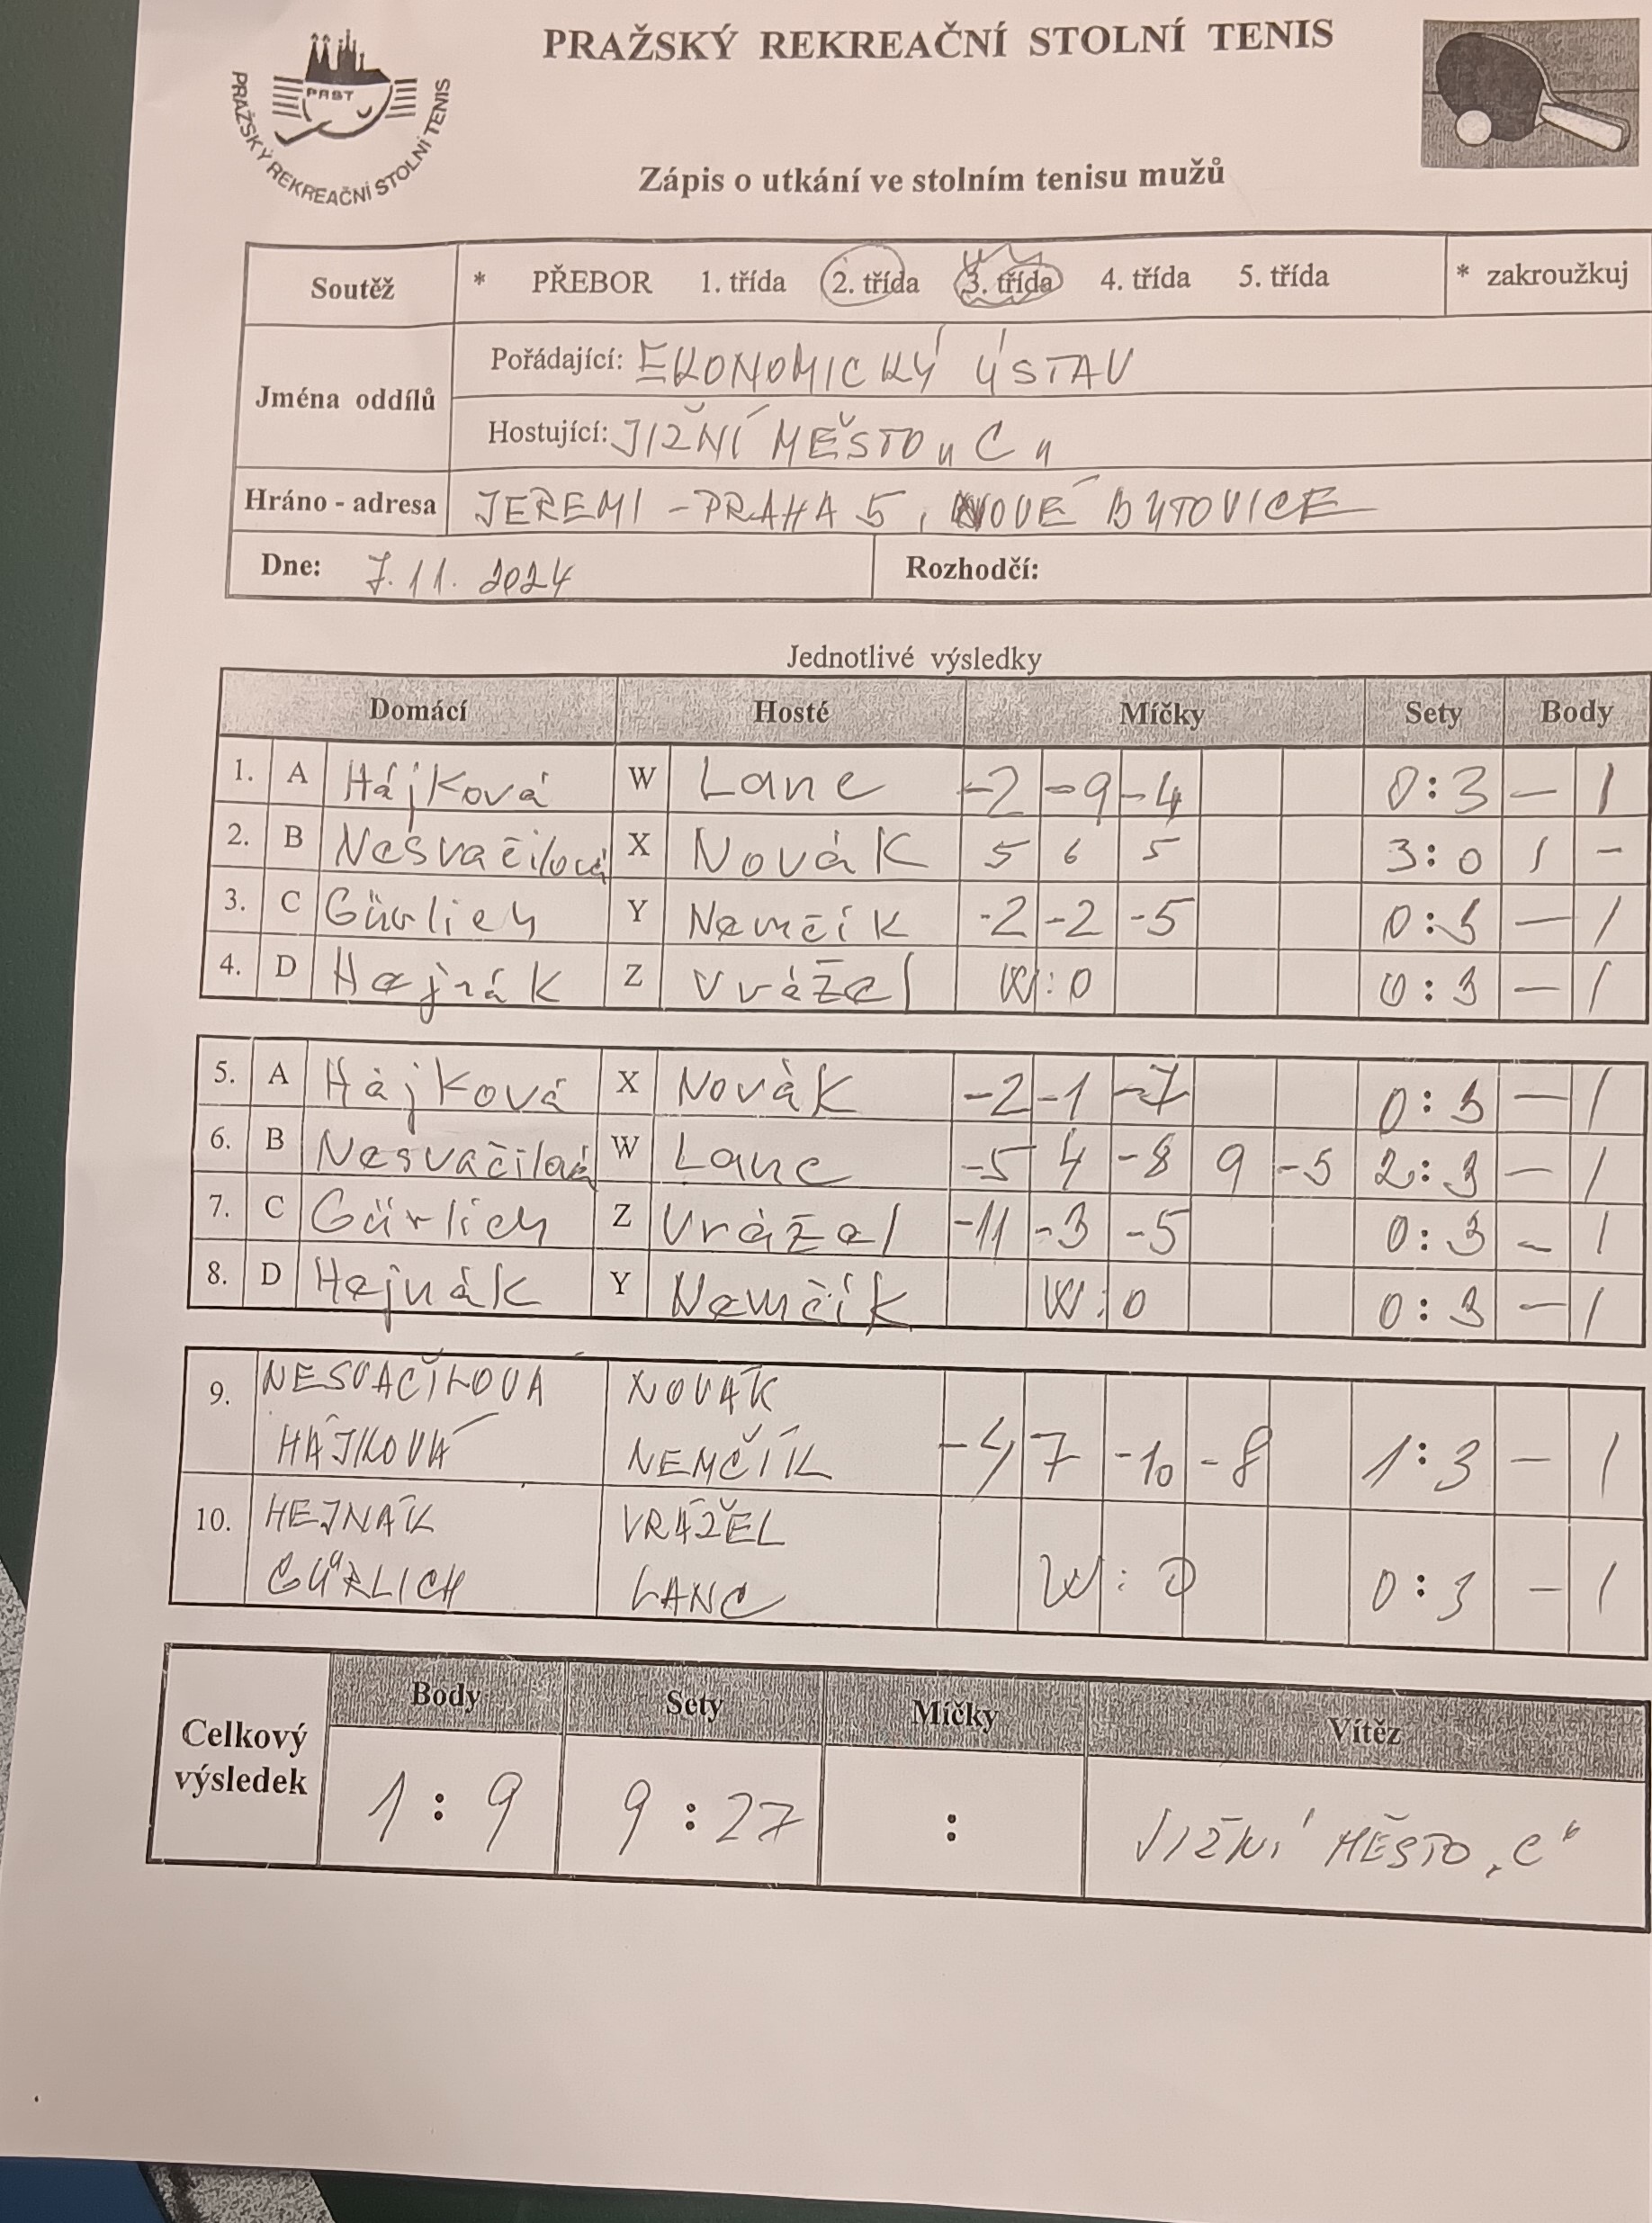 PRAŽSKÝ REKREAČNÍ STOLNÍ TENIS
PRST
PRAŽSKÝ REKREAČNÍ STOLNÍ TENIS
Zápis o utkání ve stolním tenisu mužů
Soutěž * PŘEBOR 1. třída 2. třída 3. třída 4. třída 5. třída * zakroužkuj
Jména oddílů
Pořádající: EKONOMICKÝ ÚSTAV
Hostující: JIŽNÍ MĚSTO "C"
Hráno - adresa JEREMI - PRAHA 5, NOVÉ BUTOVICE
Dne: 7. 11. 2024 Rozhodčí:
Jednotlivé výsledky
Domácí Hosté Míčky Sety Body
1. A Hájková W Lanc -2 -9 -4 0:3 - 1
2. B Nesvačilová X Novák 5 6 5 3:0 1 -
3. C Gürlich Y Nemčík -2 -2 -5 0:3 - 1
4. D Hejnák Z Vrážel W:0 0:3 - 1
5. A Hájková X Novák -2 -1 -7 0:3 - 1
6. B Nesvačilová W Lanc -5 4 -8 9 -5 2:3 - 1
7. C Gürlich Z Vrážel -11 -3 -5 0:3 - 1
8. D Hejnák Y Nemčík W:0 0:3 - 1
9. NESVAČILOVÁ NOVÁK
HÁJKOVÁ NEMČÍK -4 7 -10 -8 1:3 - 1
10. HEJNÁK VRÁŽEL
GÜRLICH LANC W:0 0:3 - 1
Celkový výsledek
Body Sety Míčky Vítěz
1:9 9:27 : JIŽNÍ MĚSTO „C“